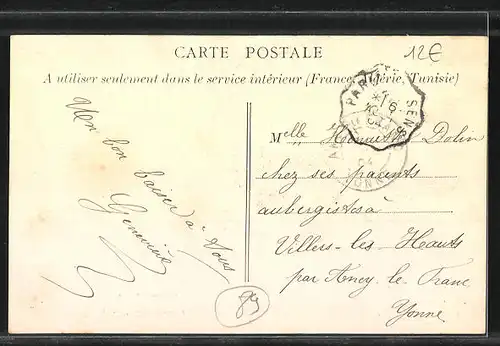 CARTE POSTALE
12€
A utiliser seulement dans le service intérieur (France, Algérie, Tunisie)
PARIS
SENS
16
04
YONNE
Un bon
baiser à
Vous
Geneviève
Melle Henriette Dolin
chez ses parents
aubergistes à
Villers-les-Hauts
par Ancy le Franc
Yonne